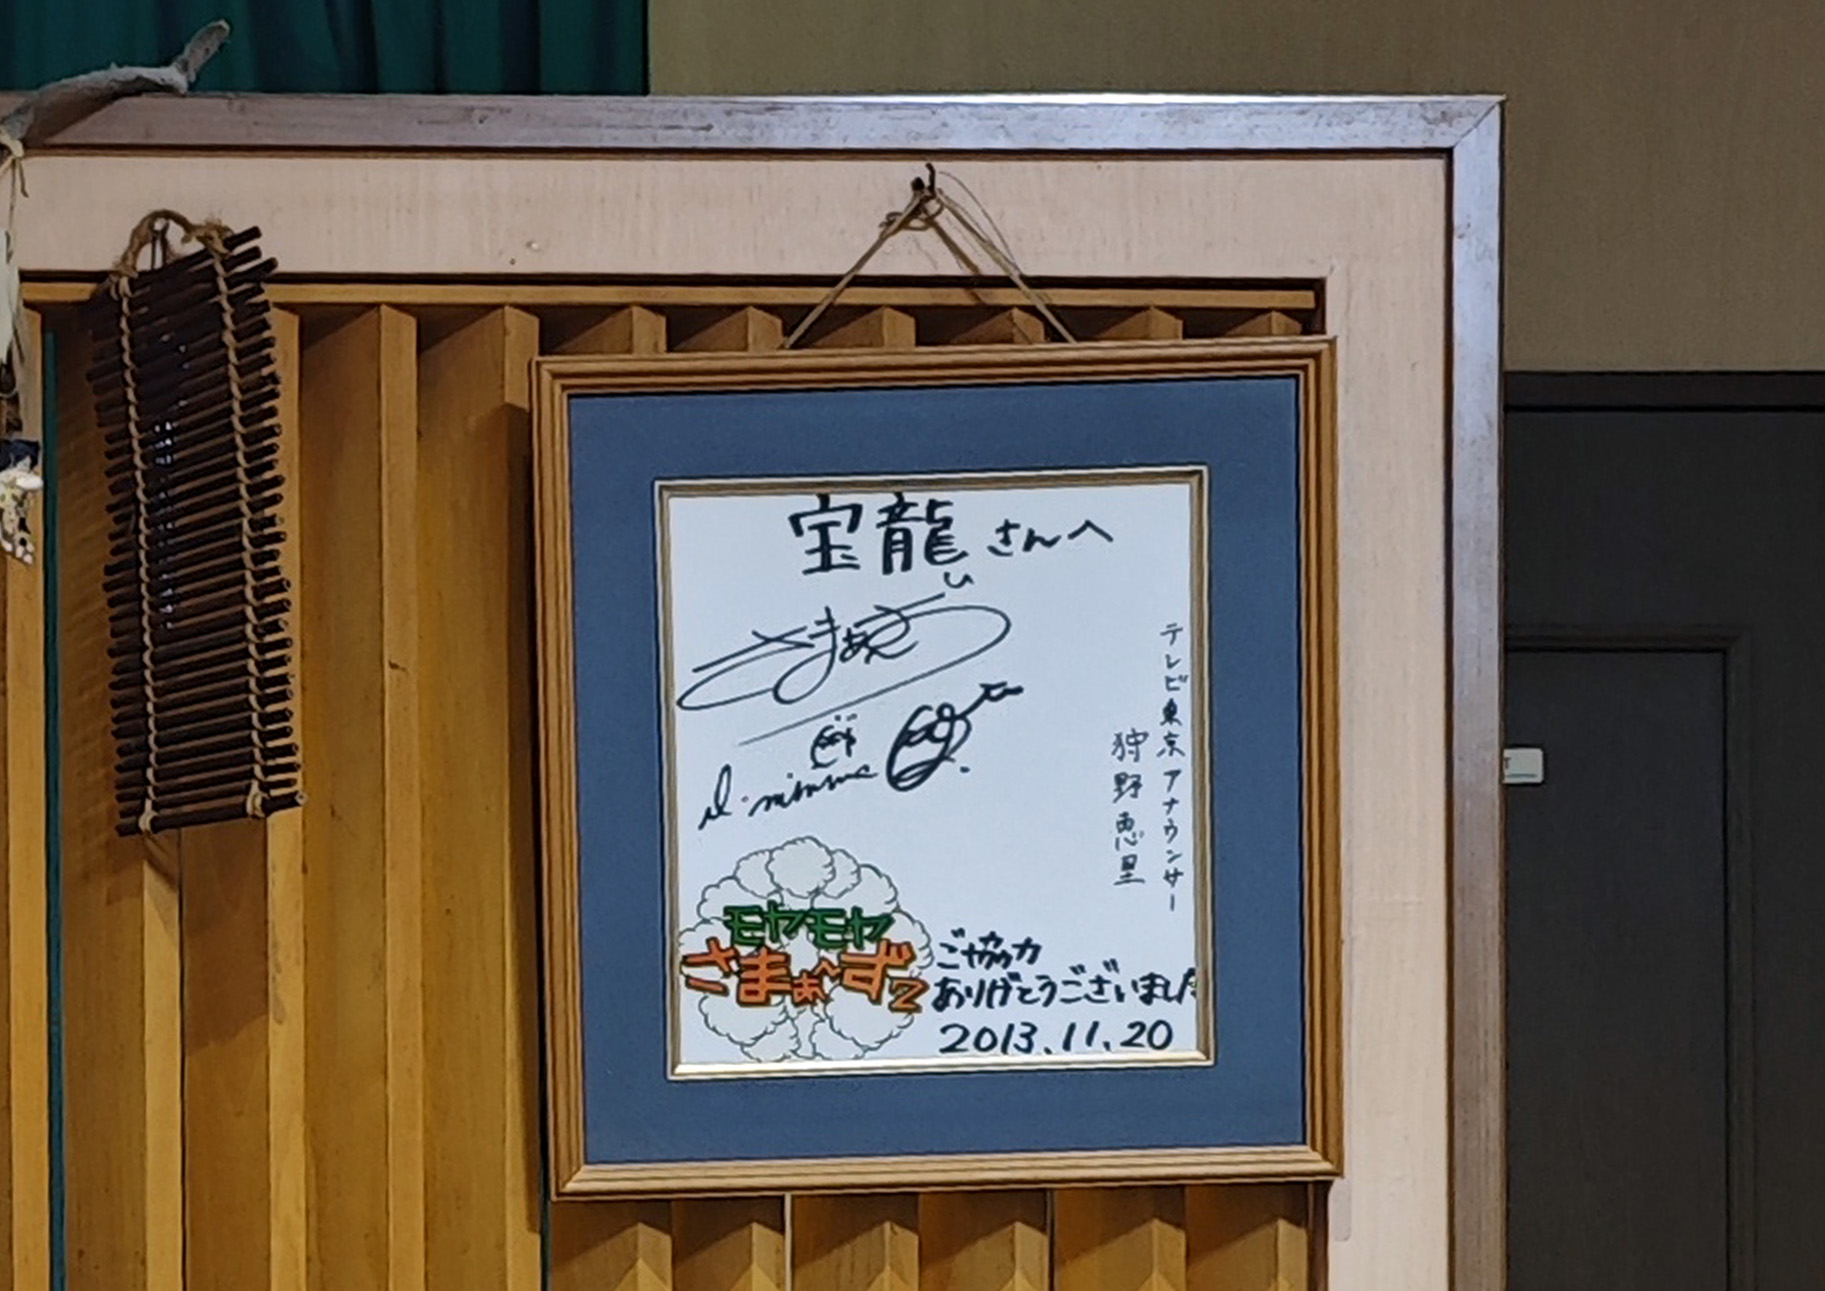 宝龍さんへ
さまぁ~ず
テレビ東京アナウンサー
狩野恵里
モヤモヤ
さまぁ~ず2
ご協力
ありがとうございました
2013.11.20